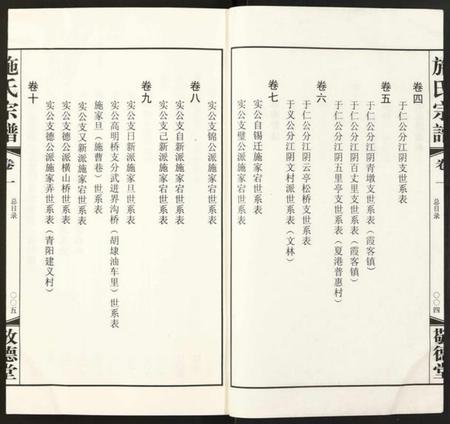 施氏宗譜
卷一
总目录
〇〇四
敬德堂
卷四
于仁公分江阴支世系表
卷五
于仁公分江阴青墩支世系表（霞客镇）
于仁公分江阴百丈里支世系表（霞客镇）
于仁公分江阴五里亭支世系表（夏港普惠村）
卷六
于仁公分江阴云亭松桥支世系表
于义公分江阴文村派世系表（文林）
卷七
实公自锡迁施家宕世系表
实公支璧公派施家宕世系表
实公支锦公派施家宕世系表
卷八
实公支自新派施家宕世系表
实公支己新派施家宕世系表
卷九
实公支日新派施家旦世系表
实公高明桥支分武进界沟桥（胡埭油车里）世系表
施家旦（施曹巷）世系表
实公支又新派施家宕世系表
实公支德公派横山桥世系表
卷十
实公支德公派施家弄世系表（青阳建义村）
施氏宗譜
卷一
总目录
〇〇五
敬德堂